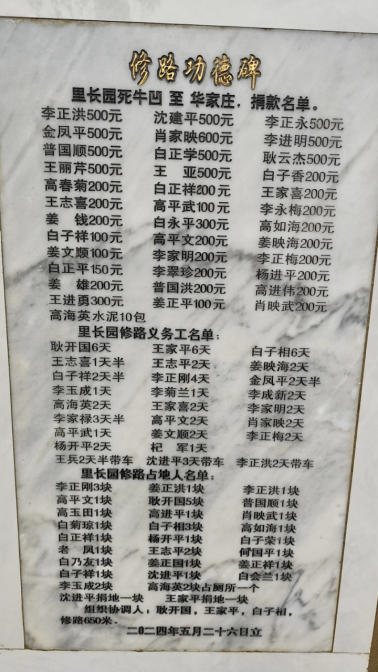 修路功德碑
里长园死牛凹 至 华家庄，捐款名单。
李正洪500元 沈建平500元 李正永500元
金凤平500元 肖家映600元 李进明500元
普国顺500元 白正学500元 耿云杰500元
王丽芹500元 王 亚500元 白子香200元
高春菊200元 白正祥200元 王家喜200元
王志喜200元 高平武100元 李永梅200元
姜 钱200元 白永平300元 高如海200元
白子祥100元 高平文200元 姜映海200元
姜文顺100元 李家明200元 李正梅200元
白正平150元 李翠珍200元 杨进平200元
姜 雄200元 普国洪200元 高进伟200元
王进勇300元 姜正平100元 肖映武200元
高海英水泥10包
里长园修路义务工名单：
耿开国6天 王家平6天 白子相6天
王志喜1天半 王志平2天 姜映海2天
白子祥2天半 李正刚4天 金凤平2天半
李玉成1天 李菊兰1天 李成新2天
高海英2天 王家喜2天 李家明2天
李家禄3天半 高平文2天 肖家映2天
高平武1天 姜文顺2天 李正梅2天
杨开平2天 杞 军1天
王兵2天半带车 沈进平3天带车 李正洪2天带车
里长园修路占地人名单：
李正刚3块 姜正洪1块 李正洪1块
高平文1块 耿开国5块 普国顺1块
高玉田1块 高进平1块 肖映武1块
白菊琼1块 白子相3块 高如海1块
白正祥1块 杨开平1块 白子荣1块
老 凤1块 王志平2块 何国平1块
白乃友1块 姜正国1块 姜正祥1块
白子祥1块 沈进平1块 白会兰1块
李玉成2块 高海英2块占厕所一个
沈进平捐地一块 王家平捐地一块
组织协调人：耿开国，王家平，白子相，
修路650米。
二〇二四年五月二十六日立